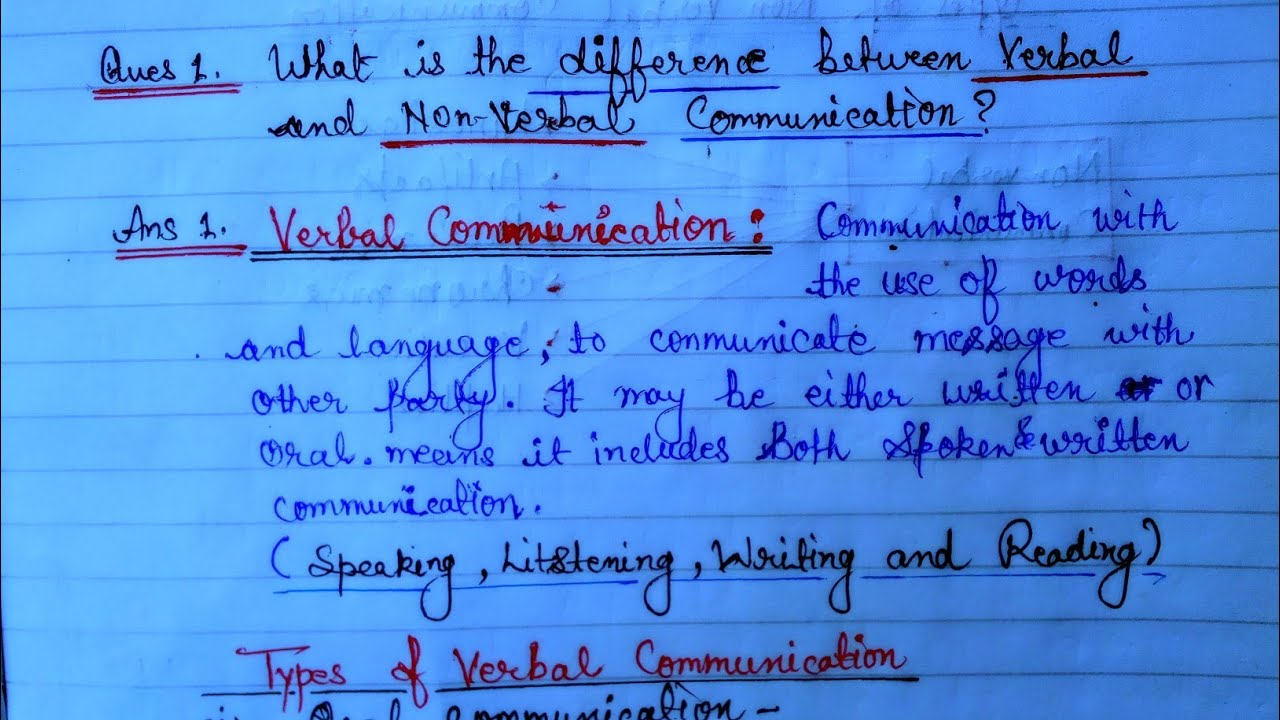 Ques 1. What is the difference between Verbal
and Non-Verbal Communication?
Ans 1. Verbal Communication: Communication with
the use of words
and language, to communicate message with
other party. It may be either written or
oral. means it includes Both Spoken & written
communication.
(Speaking, Litstening, Writing and Reading)
Types of Verbal Communication
Oral communication -